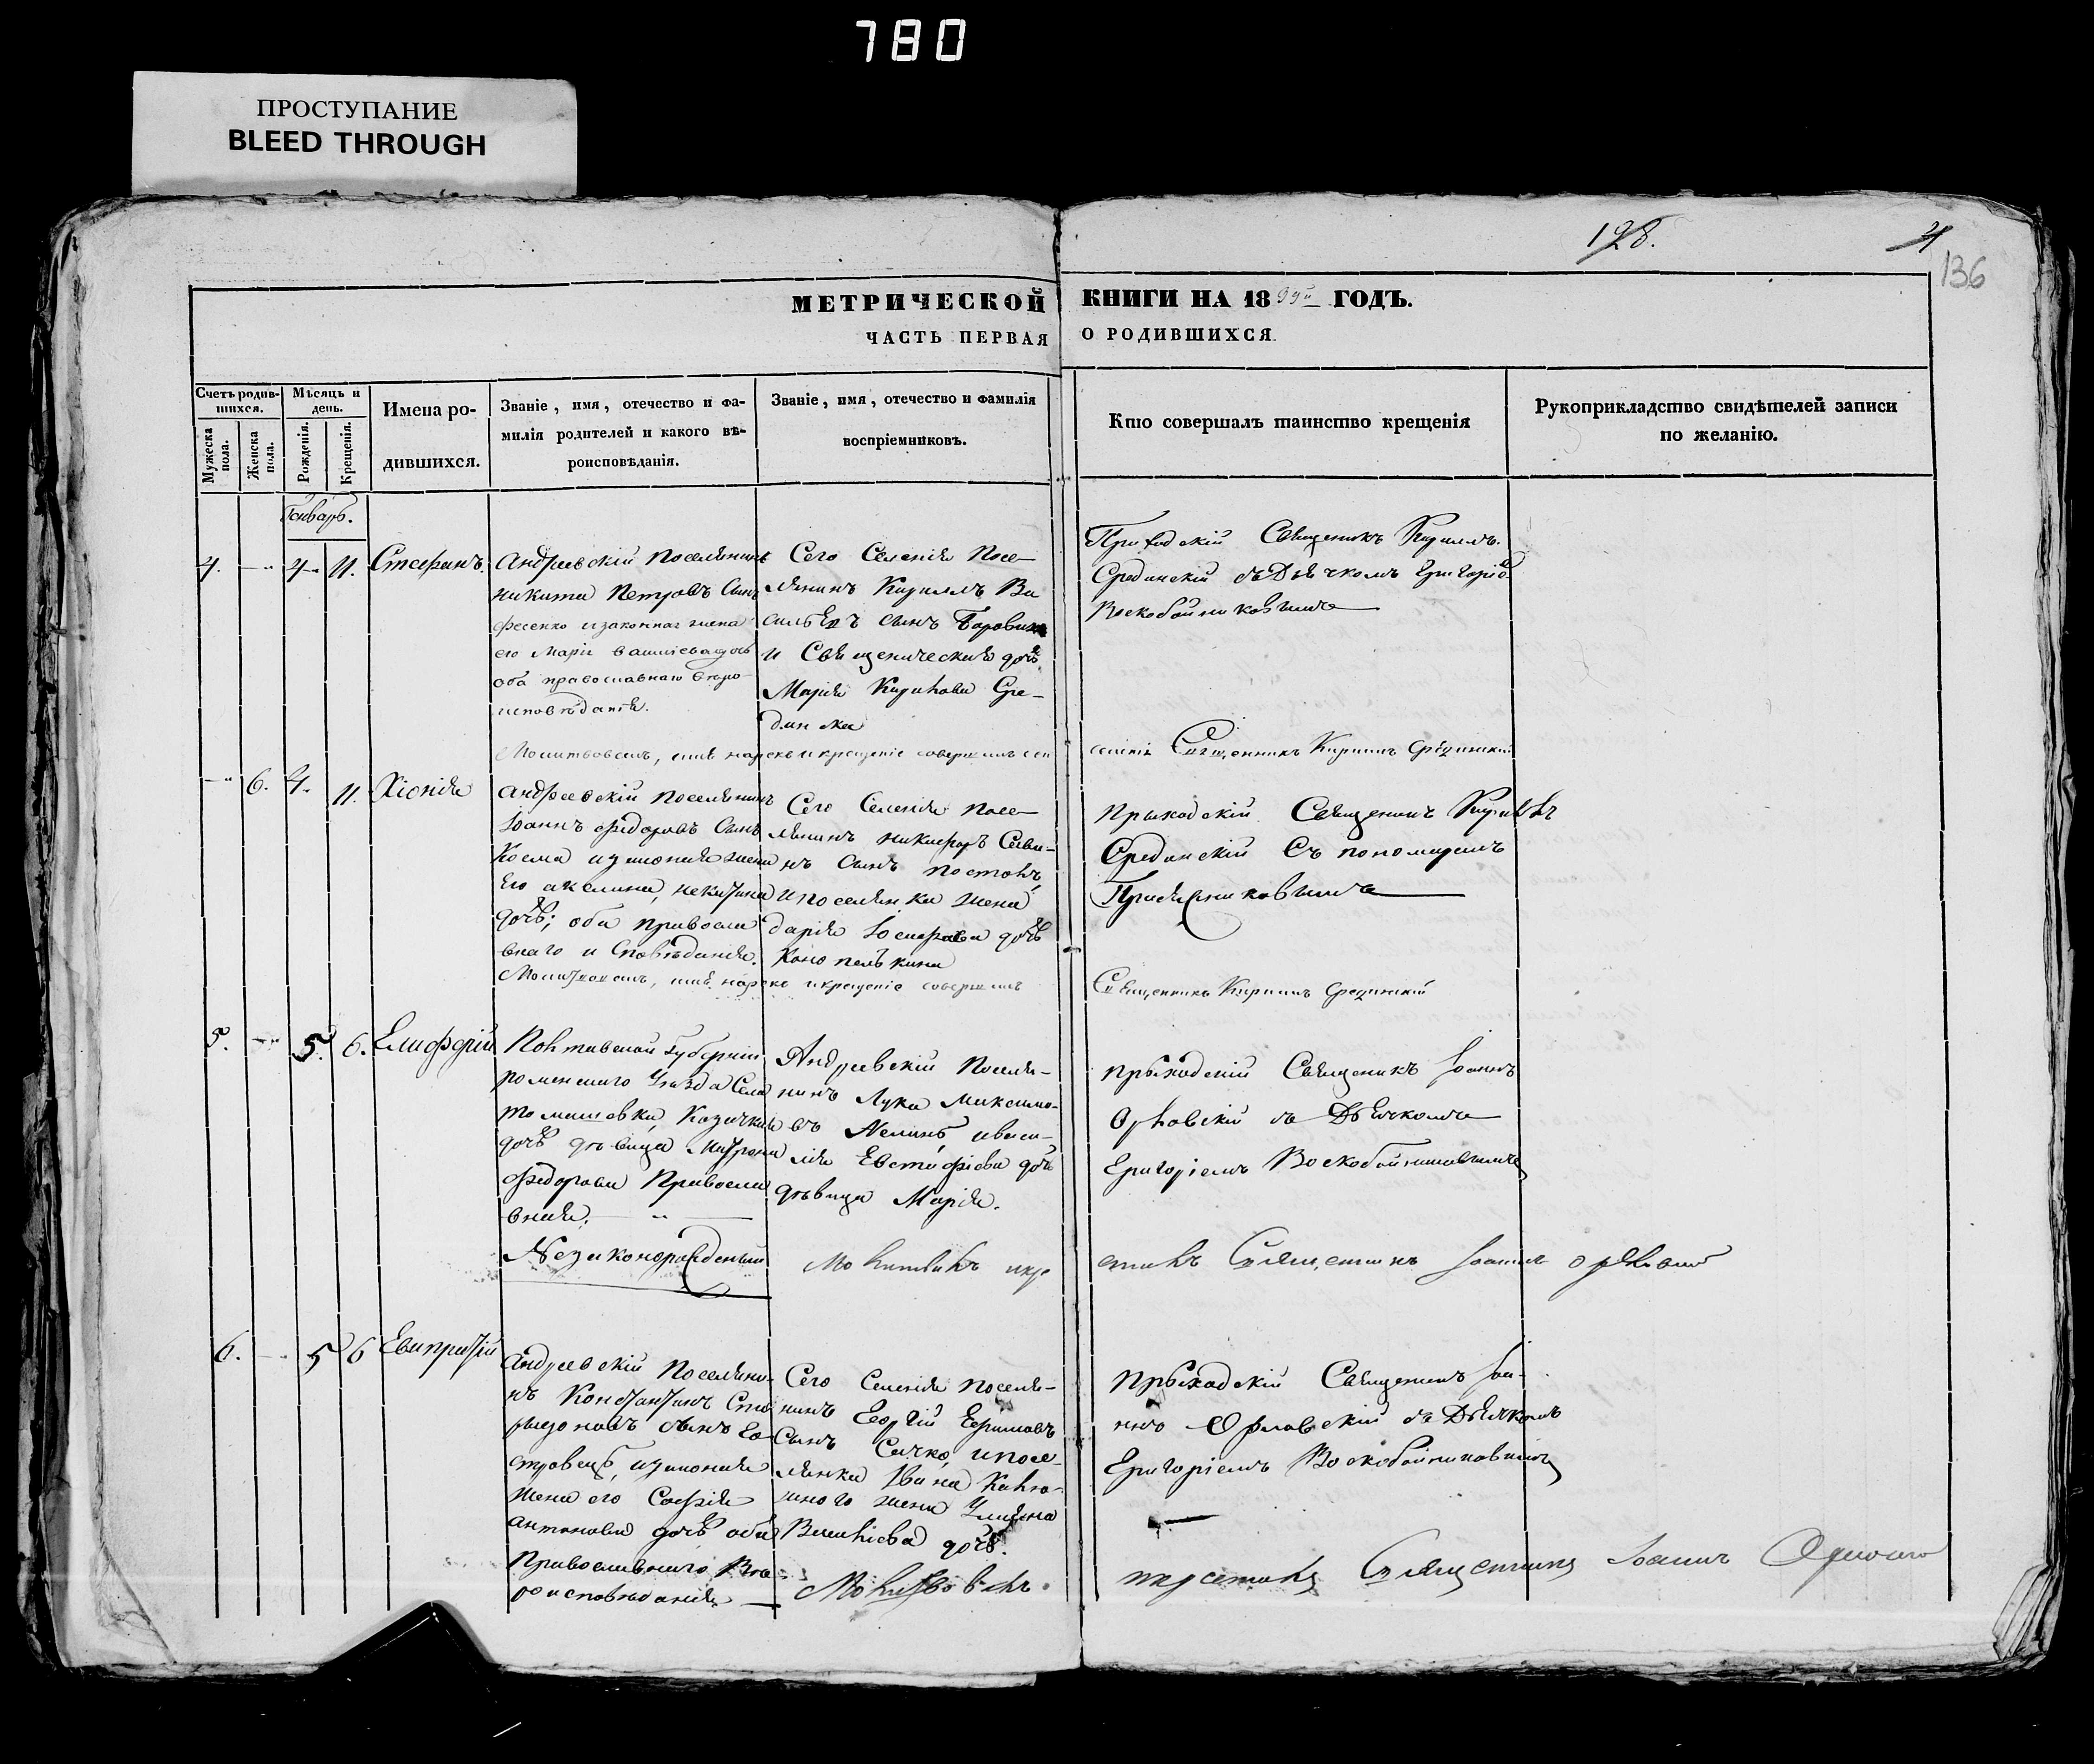 780
ПРОСТУПАНИЕ
BLEED THROUGH
128.
136
МЕТРИЧЕСКОЙ КНИГИ НА 18 ГОДЪ.
ЧАСТЬ ПЕРВАЯ О РОДИВШИХСЯ.
Счетъ родив-
шихся.
Мужеска
пола.
Женска
пола.
Мѣсяцъ и
день.
Рожденія.
Крещенія.
Имена ро-
дившихся.
Званіе, имя, отечество и фа-
милія родителей и какого вѣ-
роисповѣданія.
Званіе, имя, отечество и фамилія
воспріемниковъ.
Кто совершалъ таинство крещенія
Рукоприкладство свидѣтелей записи
по желанію.
Генварь.
4. 4 11. Стефанъ.
Андреевскій поселянинъ
никита Петровъ Сынъ
Фесенко изаконная жена
его Марія
оба православнаго вѣро
исповѣданія.
Сего Селенія Посе-
лянинъ Кириллъ Ва
сильевъ сынъ
и Священическая дочь
Марія Кирилова Сре-
динска
Приходскій Священикъ Кириллъ
Срединскій съ Дьячкомъ Григоріе
Воскобойниковымъ
Молитвовалъ, имя нарекъ и крещеніе совершилъ
Священникъ Кириллъ Срединскій
6. 4. 11. Хіонія
Андреевскій поселянинъ
Іоаннъ Федоровъ Сынъ
Косма изаконная жена
Его акелина, никитина
дочь; оба православ
внаго исповѣданія.
Сего Селенія посе-
лянинъ никифоръ Савви-
нъ Сынъ постолъ
ипоселянка жена
дарія Іосифова дочь
Конопелькина
прыходскій Священикъ Кирилъ
Срединскій Съ пономаремъ
Молитвовалъ, имя нарекъ икрещеніе совершилъ
Священникъ Кириллъ Срединскій
5. 5. 6. Елифѳрій
Полтавской Губерніи
роменскаго Уѣзда Села
томашовки, Казачки
дочь дѣвица Матрона
Федорова Православ
вная.
Незаконорожденый
Андреевскій Поселя-
нинъ Лука Максимо-
въ иваси-
лія Евстафіева дочь
дѣвица Марія.
прыходскій Священикъ Іоаннъ
Орловскій съ Дьячкомъ
Григоріемъ Воскобойниковымъ
Молитвилъ икре
стилъ Священникъ Іоаннъ Орловскій
6. 5 6 Евпратій
Андреевскій Поселяни-
нъ Константинъ Спи
ридоновъ сынъ Ео-
изаконная
жена его Софія
антонова дочь оба
Православнаго Вѣ-
роисповѣданія
Сего Селенія поселя-
нинъ Георгій Ефимовъ
Сынъ Сичко, ипосе-
лянка Ивана Калю-
жного жена Уліяна
дочь.
Молитвовалъ
прыходскій Священикъ Іоа-
ннъ Орловскій съ Дьячкомъ
Григоріемъ Воскобойниковымъ
икрестилъ Священникъ Іоаннъ